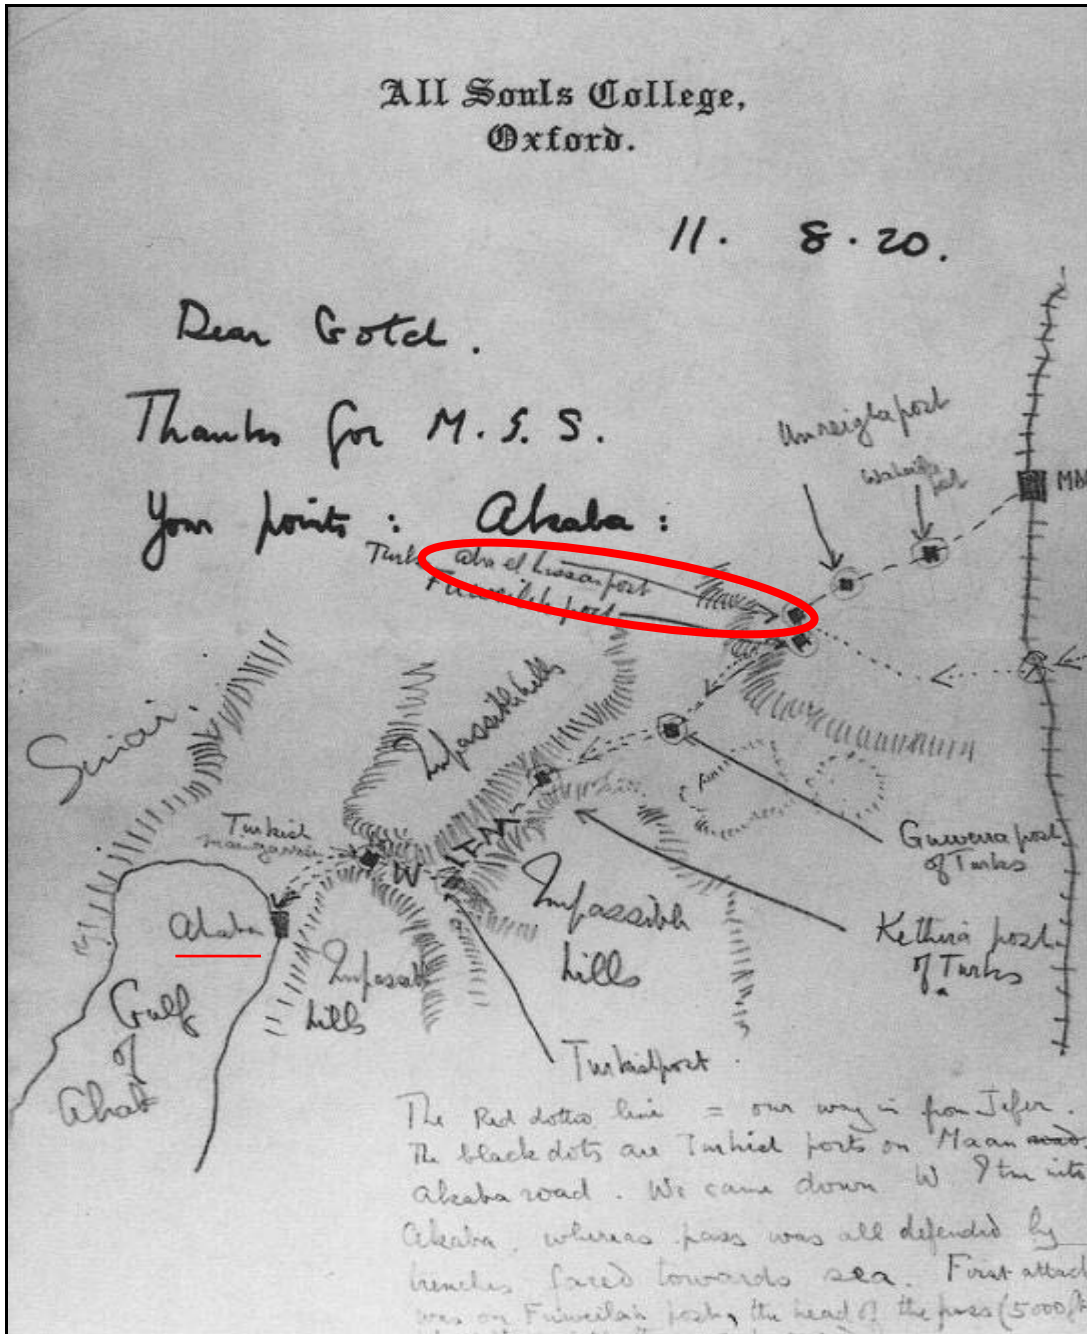 All Souls College,
Oxford.
11. 8. 20.
Dear Gotch.
Thanks for M.S.S.
Your points: Akaba:
Unreigha post
post
MAA
Turks
Aba el Lissan post
Fuweilah post
Sinai.
Impassible hills
Turkish
Guwerra post
of Turks
W ITM
Impassible
hills
Kethira post
of Turks
Akaba
Impassible
hills
Gulf
of
Akab
Turkish post
The Red dotted line = our way in from Jefer.
The black dots are Turkish posts on Maan road
Akaba road. We came down W. Itm into
Akaba, whereas pass was all defended by
trenches faced towards sea. First attack
was on Fuweilah post, the head of the pass (5000 ft